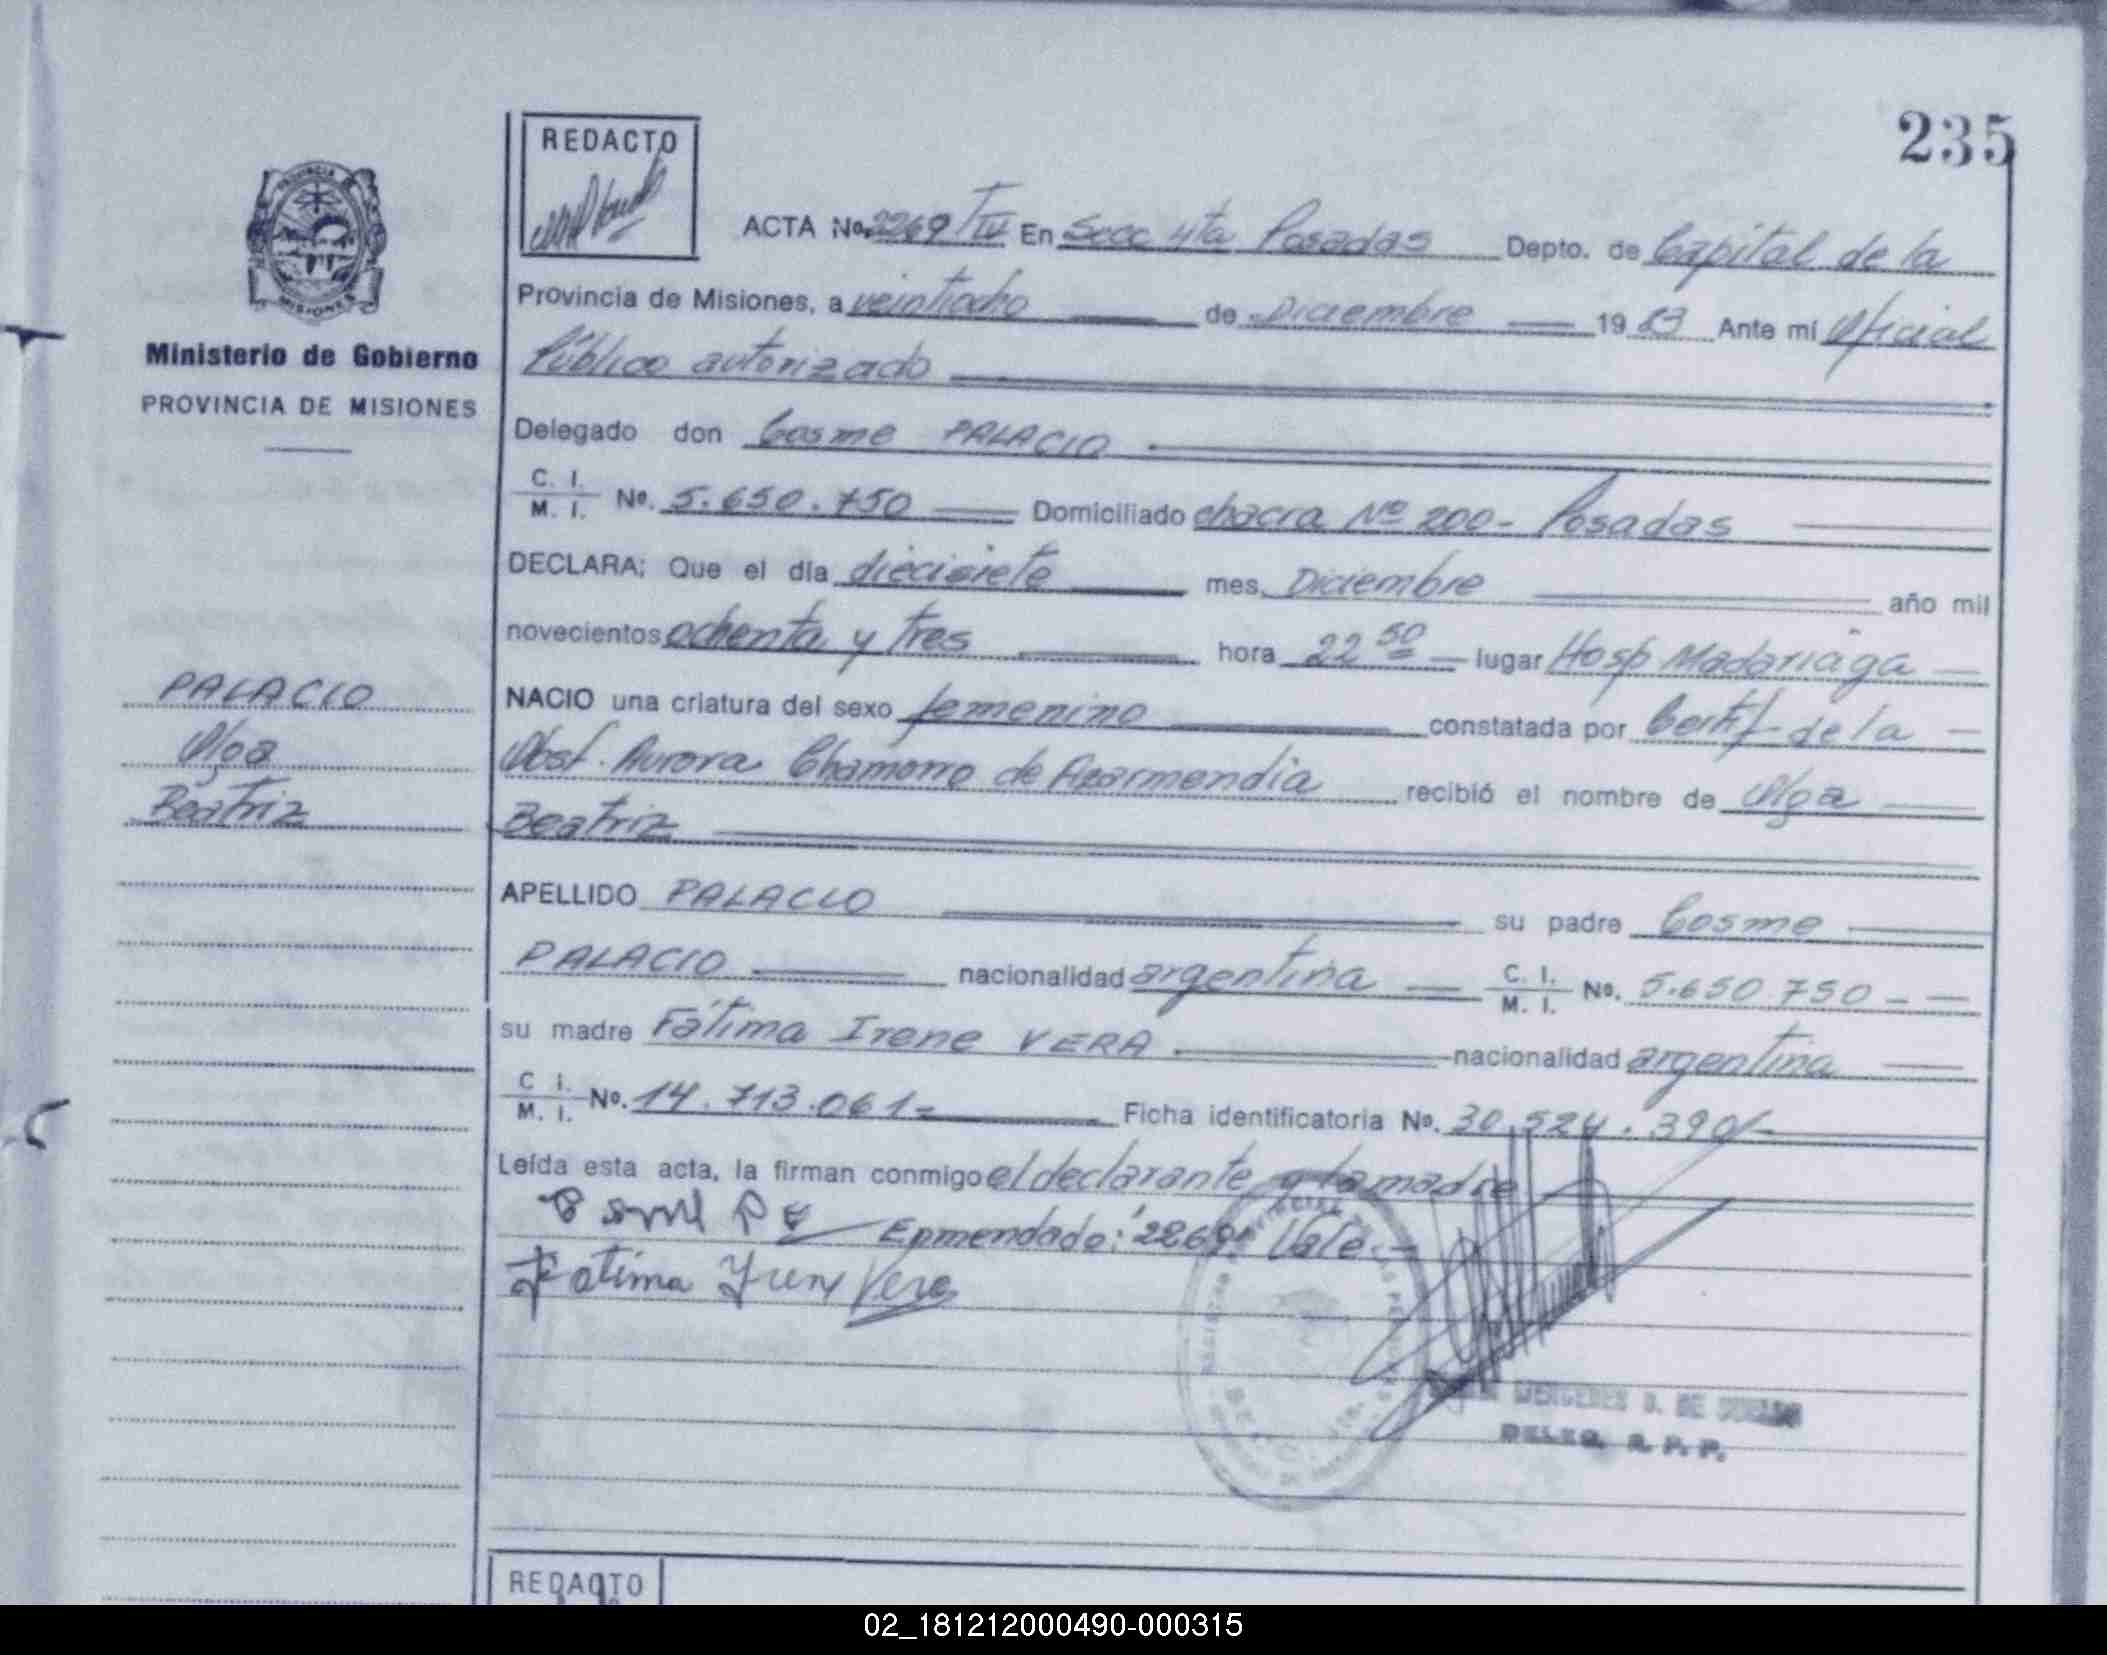 235
REDACTO
ACTA No. 2269 TIV En Secc 4ta Posadas Depto. de Capital de la
Provincia de Misiones, a veintiocho de Diciembre 1983 Ante mí Oficial
Público autorizado
Delegado don Cosme PALACIO
C. I.
M. I. No. 5.650.750 Domiciliado chacra Nº 200 - Posadas
DECLARA: Que el día diecisiete mes, Diciembre año mil
novecientos ochenta y tres hora 22 50 lugar Hosp Madariaga
NACIO una criatura del sexo femenino constatada por Certif de la
Obst. Aurora Chamorro de Azarmendia recibió el nombre de Olga
Beatriz
APELLIDO PALACIO su padre Cosme
PALACIO nacionalidad argentina C. I.
M. I. No. 5.650.750
su madre Fátima Irene VERA nacionalidad argentina
C. I.
M. I. No. 14.713.061 Ficha identificatoria No. 30.524.390
Leída esta acta, la firman conmigo el declarante y la madre
Enmendado: "2269" Vale.-
Fatima Irene Vera
MERCEDES D. DE
DELEG. R. P. P.
PROVINCIA DE
MISIONES
Ministerio de Gobierno
PROVINCIA DE MISIONES
PALACIO
Olga
Beatriz
REDACTO
02_181212000490-000315